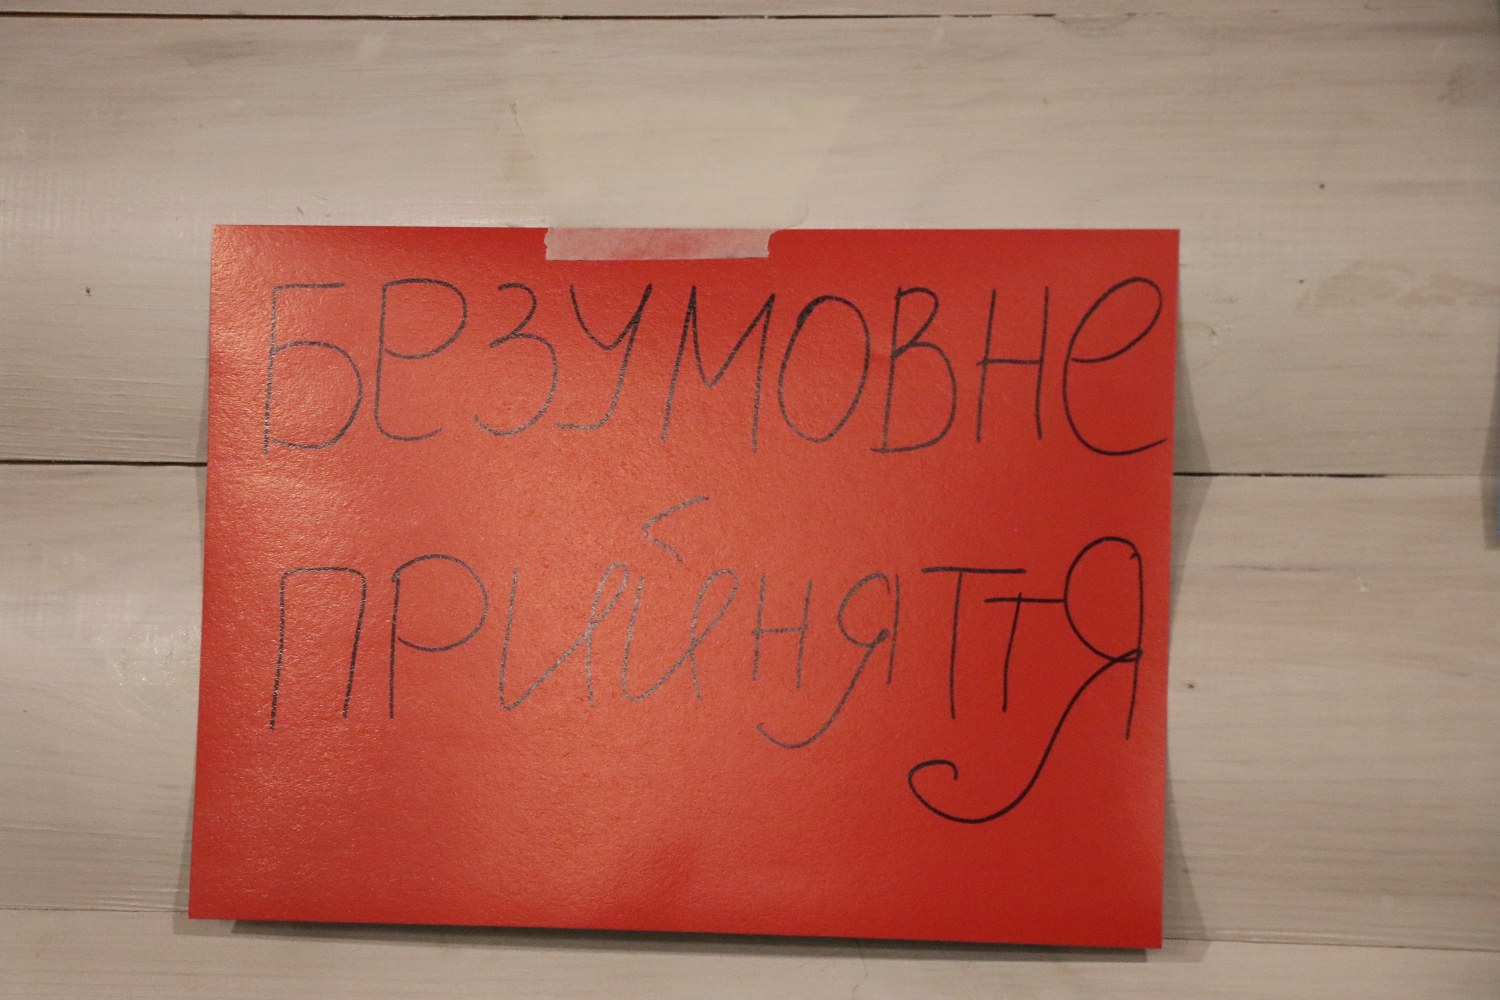 БЕЗУМОВНЕ
ПРИЙНЯТТЯ